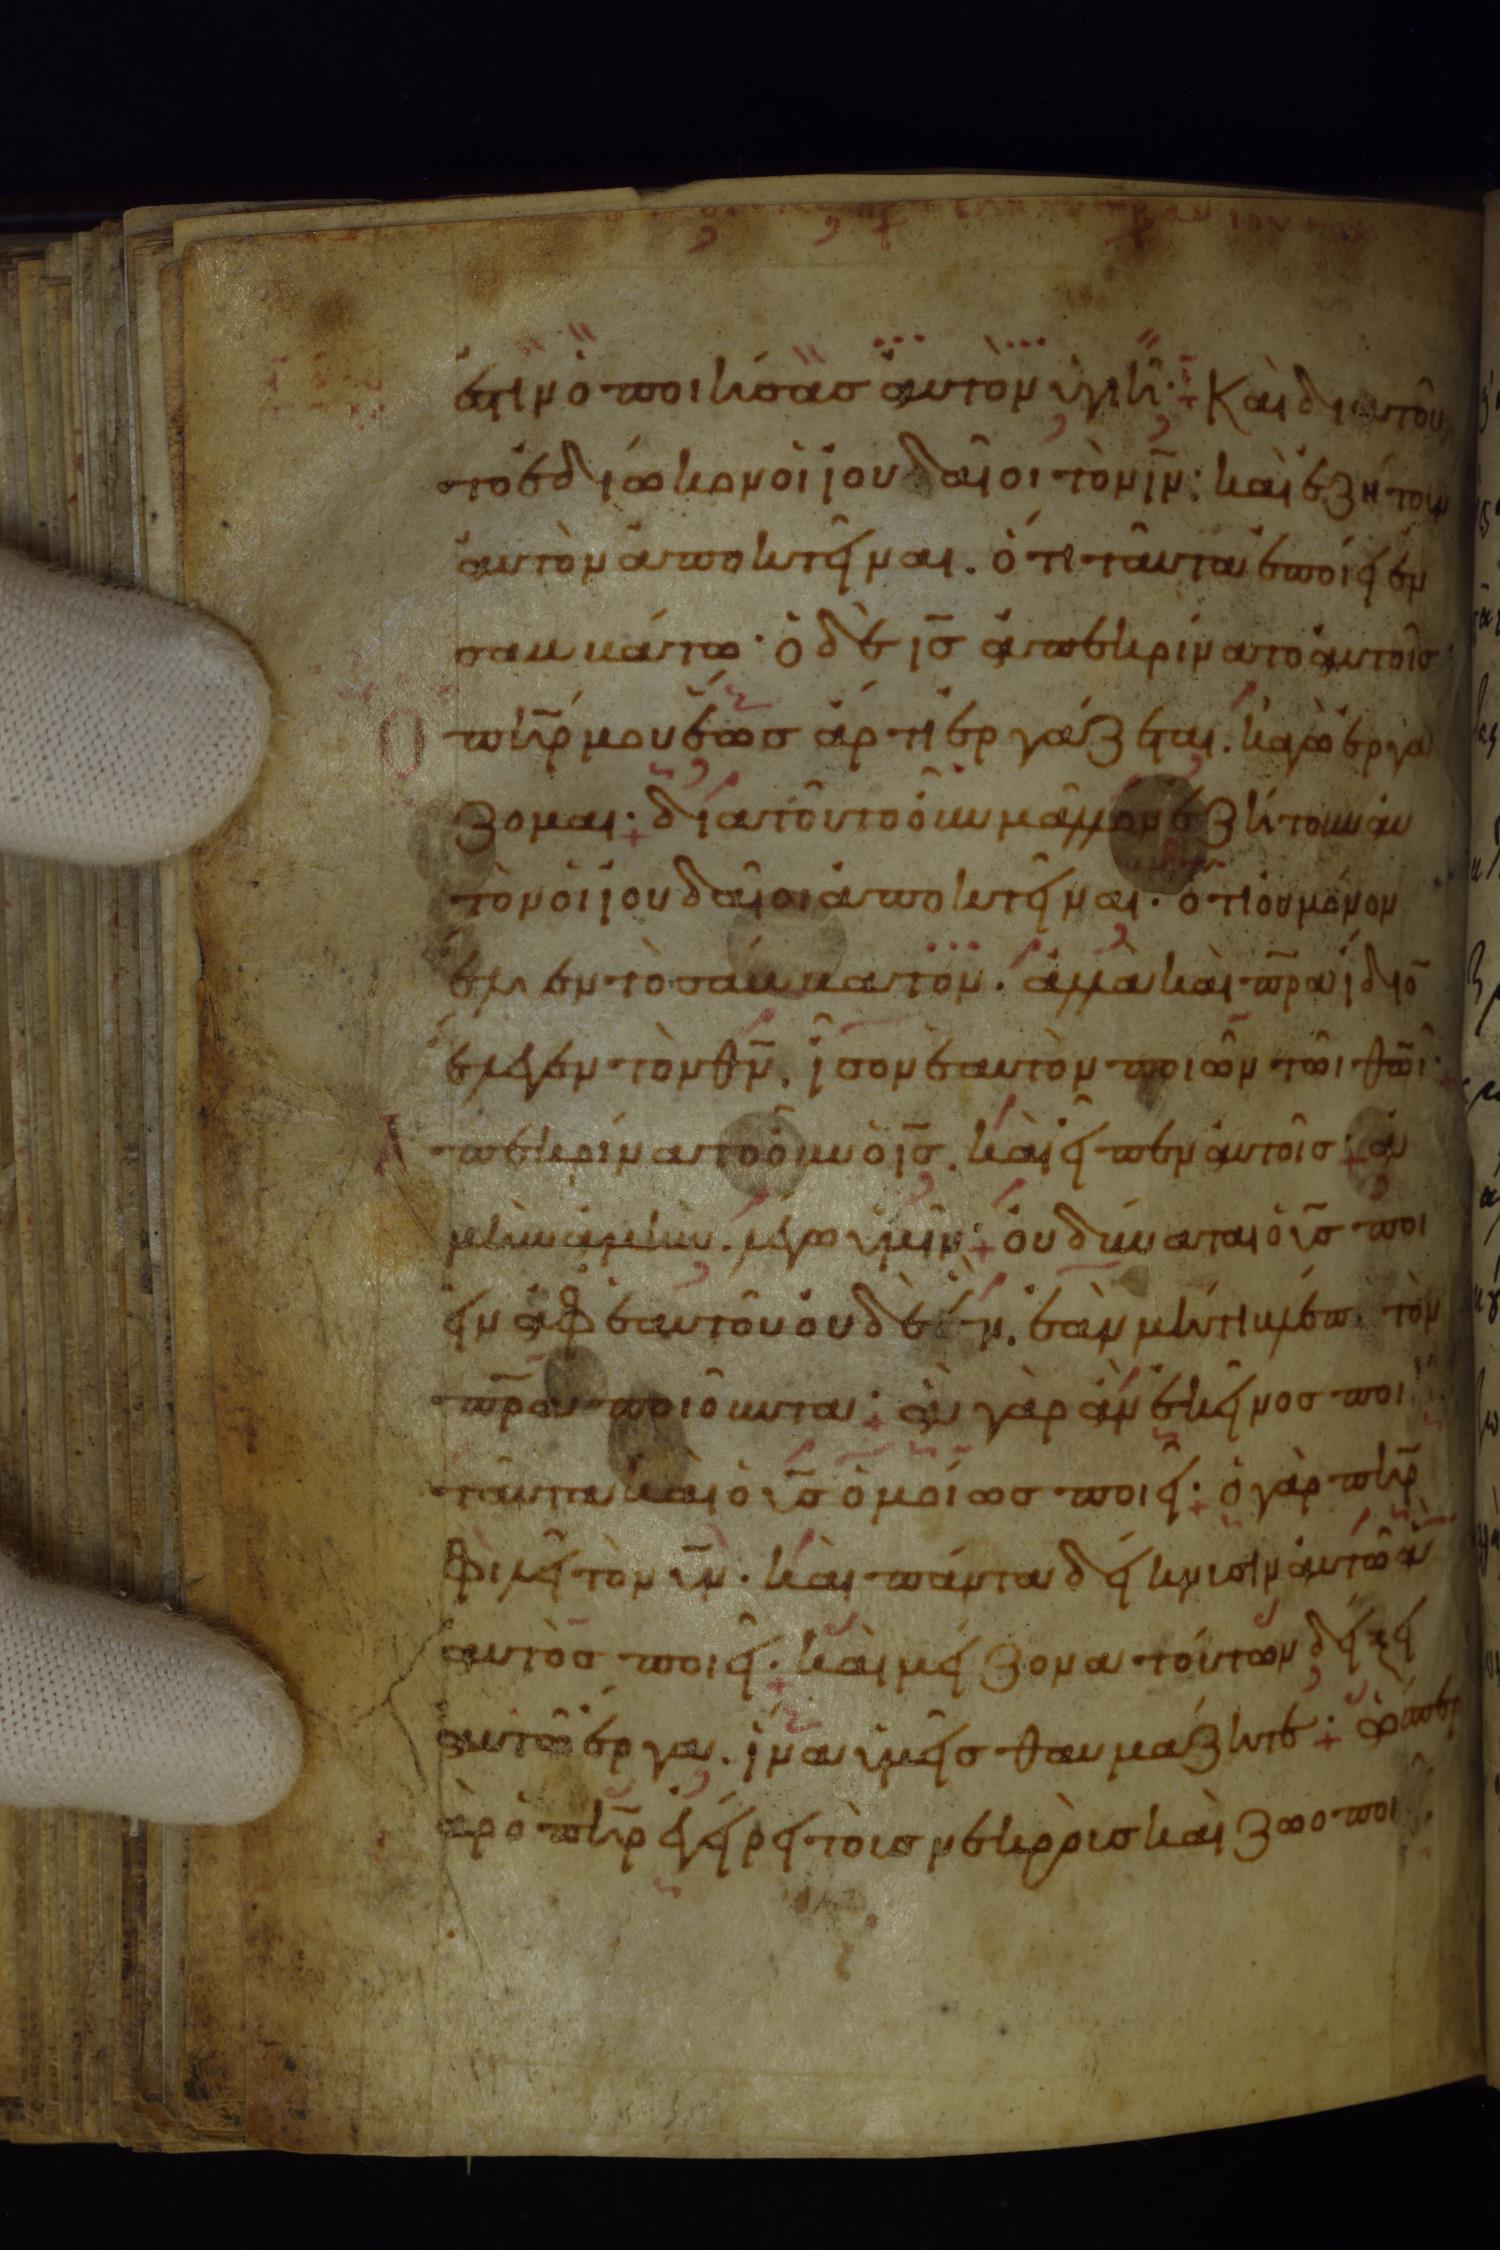 ἐστιν ὁ ποιήσας αὐτὸν ὑγιῆ· Καὶ διὰ τοῦ
το ἐδίωκον οἱ ἰουδαῖοι τὸν ιν̅· καὶ ἐζήτουν
αὐτὸν ἀποκτεῖναι. ὅτι ταῦτα ἐποίει ἐν
σαββάτω· ὁ δὲ ις̅ ἀπεκρίνατο αὐτοῖς·
Ο πη̅ρ μου ἕως ἄρτι ἐργάζεται. καγὼ ἐργά
ζομαι· διὰ τοῦτο οὖν μᾶλλον ἐζήτουν αὐ
τὸν οἱ ἰουδαῖοι ἀποκτεῖναι· ὅτι οὐ μόνον
ἔλυεν τὸ σάββατον. ἀλλὰ καὶ πρ̅α ἴδιο̅
ἔλεγεν τὸν θν̅. ἴσον ἑαυτὸν ποιῶν τῶι θω̅ι·
Α πεκρίνατο οὖν ὁ ις̅. καὶ εἶπεν αὐτοῖς· ἀ
μὴν ἀμὴν. λέγω ὑμῖν· οὐ δύναται ὁ υς̅ ποι
εῖν ἀφ ἑαυτοῦ οὐδὲν. ἐὰν μή τι βλέπῃ τὸν
πρ̅α ποιοῦντα· ἃ γὰρ ἂν ἐκεῖνος ποιῇ
ταῦτα καὶ ὁ υς̅ ὁμοίως ποιεῖ· ὁ γὰρ πη̅ρ
φιλεῖ τὸν υν̅. καὶ πάντα δείκνυσιν αὐτῶ ἃ
αὐτὸς ποιεῖ· καὶ μείζονα τούτων δείξει
αὐτῶ ἔργα. ἵνα ὑμεῖς θαυμάζητε· ὥσπερ
γὰρ ὁ πη̅ρ ἐγείρει τοὺς νεκροὺς καὶ ζωοποι